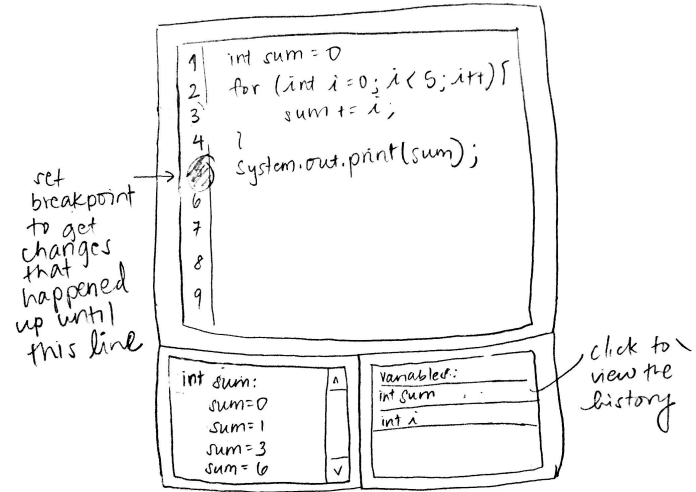 1 int sum = 0
2 for (int i=0; i< 5; i++){
3 sum += i;
4 }
system.out.print(sum);
6
7
8
9
set
breakpoint
to get
changes
that
happened
up until
this line
int sum:
sum=0
sum=1
sum=3
sum=6
variables:
int sum
int i
click to
view the
history